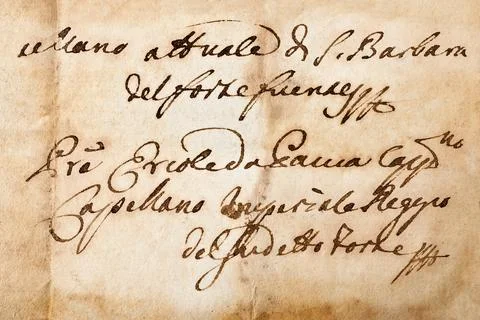 ellano attuale di S. Barbara
del forte fuentes
Prē Ercole da Capp.no
Capellano Imperiale Reggio
del sudetto forte